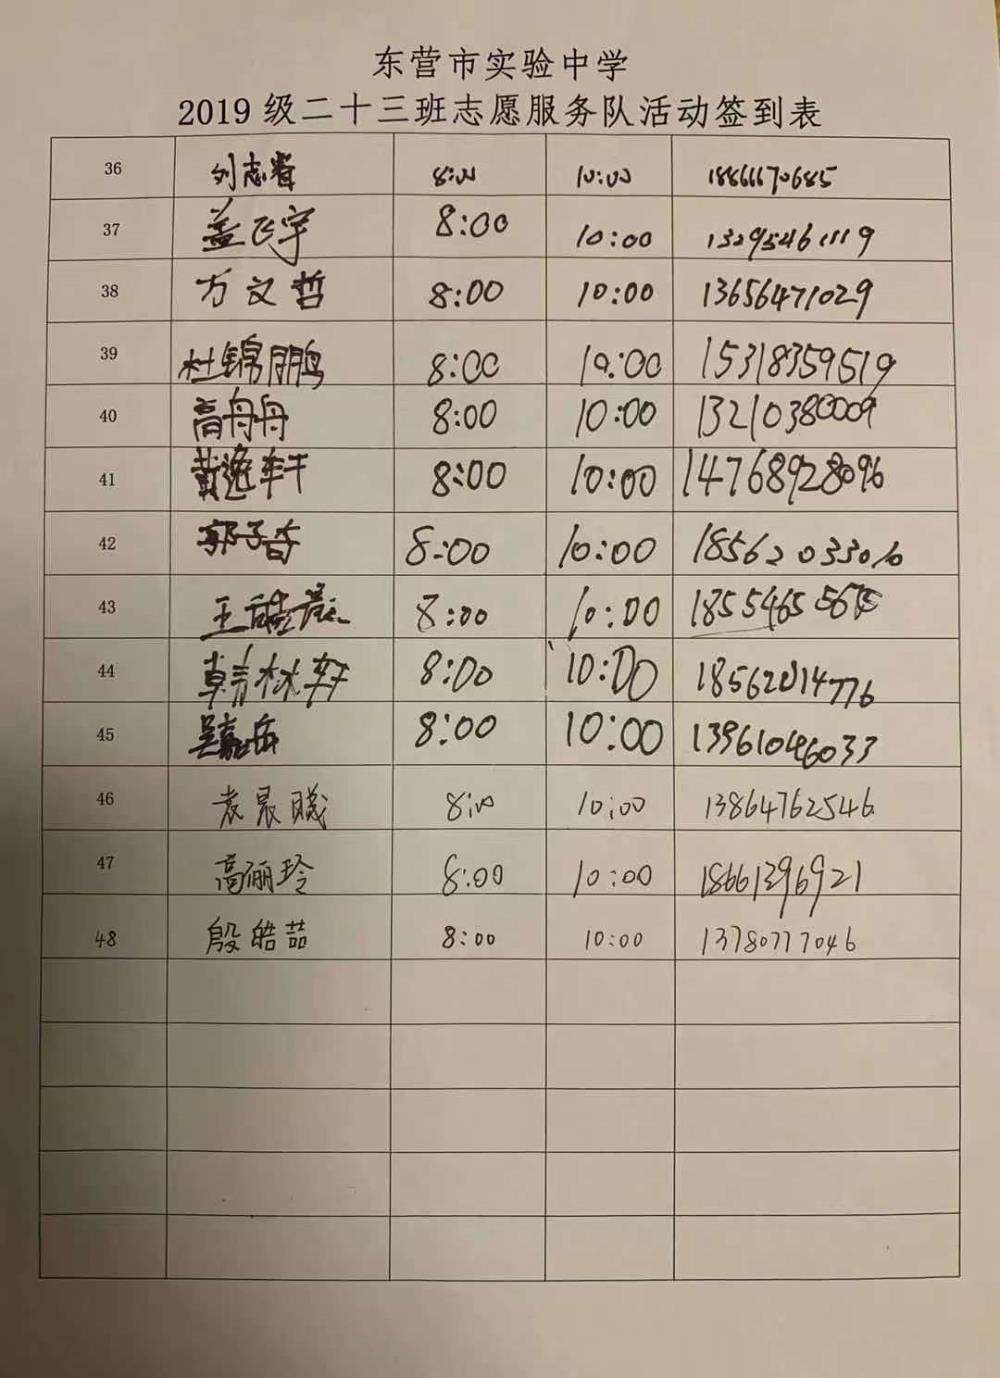 东营市实验中学
2019级二十三班志愿服务队活动签到表
36 刘志睿 8:00 10:00 18866670685
37 盖飞宇 8:00 10:00 13295461119
38 万文哲 8:00 10:00 13656471029
39 杜锦鹏 8:00 10:00 15318359519
40 高舟舟 8:00 10:00 13210380009
41 黄逸轩 8:00 10:00 14768928096
42 郭子奇 8:00 10:00
43 王 8:00 10:00
44 韩林轩 8:00 10:00 18562014776
45 吴嘉岳 8:00 10:00 13961046033
46 袁晨曦 8:00 10:00 13864762546
47 高俪玲 8:00 10:00 18661396921
48 殷皓喆 8:00 10:00 13780777046